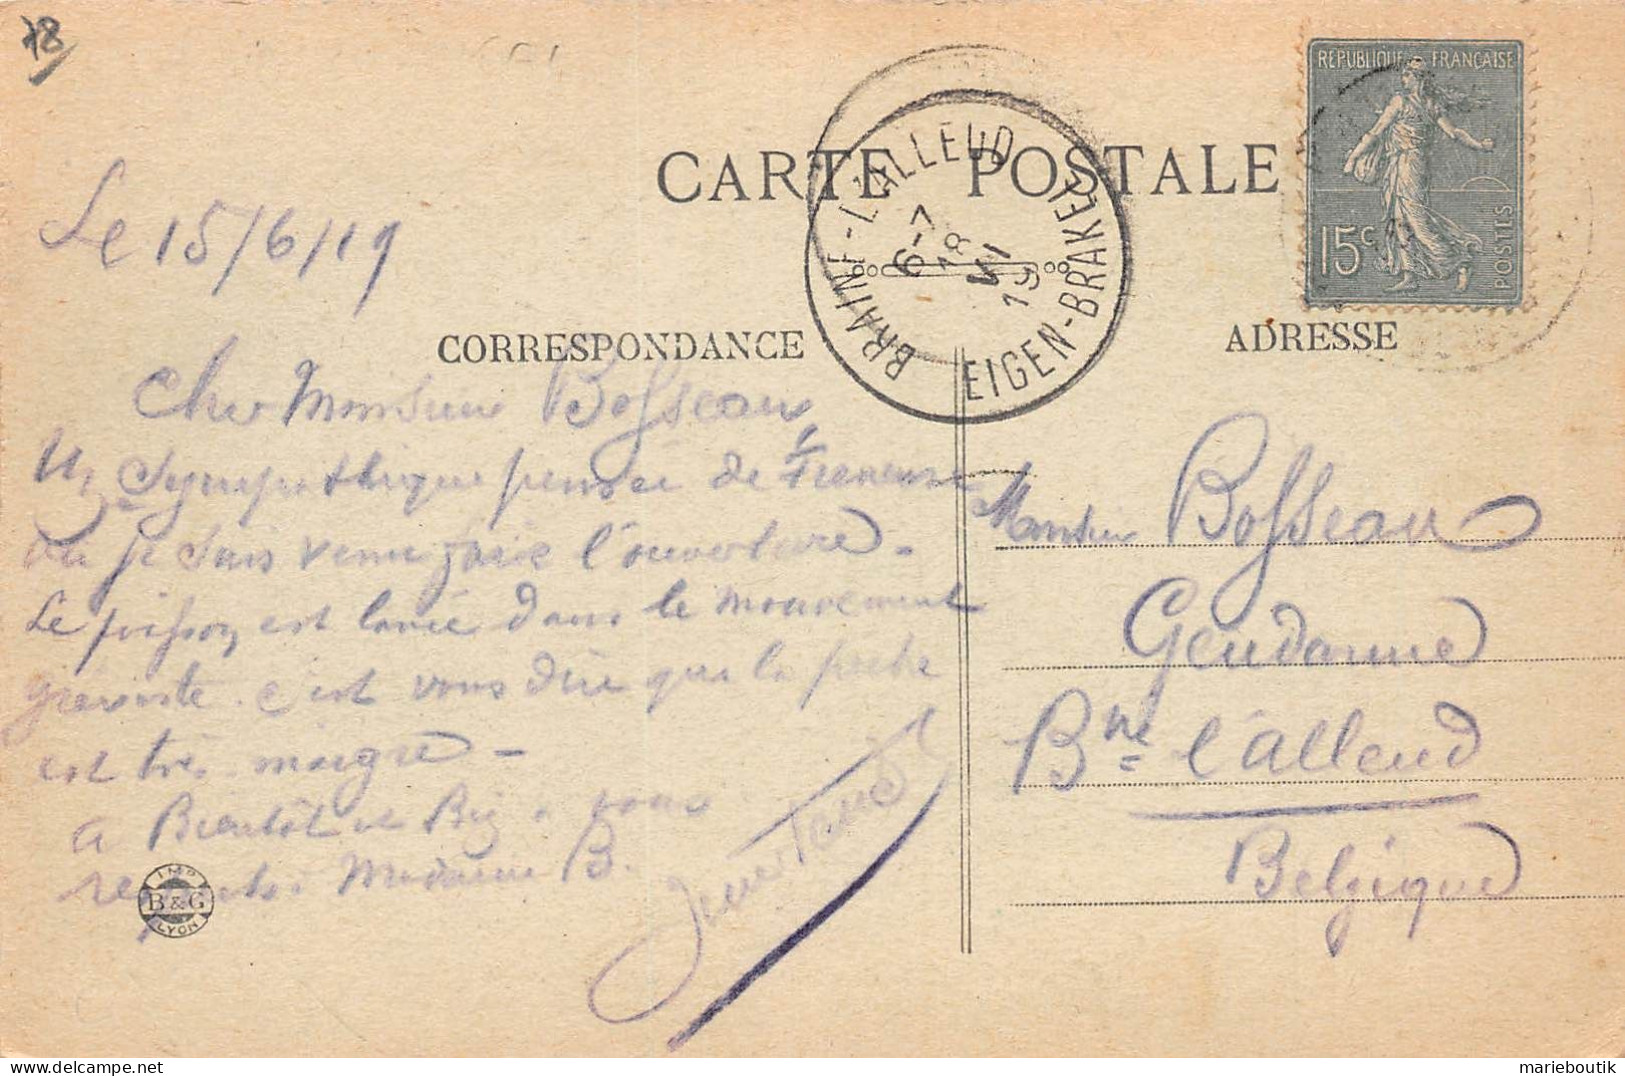 78
CARTE POSTALE
REPUBLIQUE FRANÇAISE
15c
POSTES
BRAINE-L'ALLEUD
6-7
18
VI
19
EIGEN-BRAKEL
Le 15/6/19
CORRESPONDANCE
ADRESSE
Cher Monsieur Bosseau,
Une sympathique pensée de
où je suis venu faire l'ouverture -
Le poisson est lancé dans le mouvement
greviste. c'est vous dire que la pêche
est très maigre -
a Bientôt et Big a vous
respects a Madame B.
Monsieur Bosseau
Gendarme
Bne l'alleud
Belgique
IMP
B&G
LYON
marieboutik